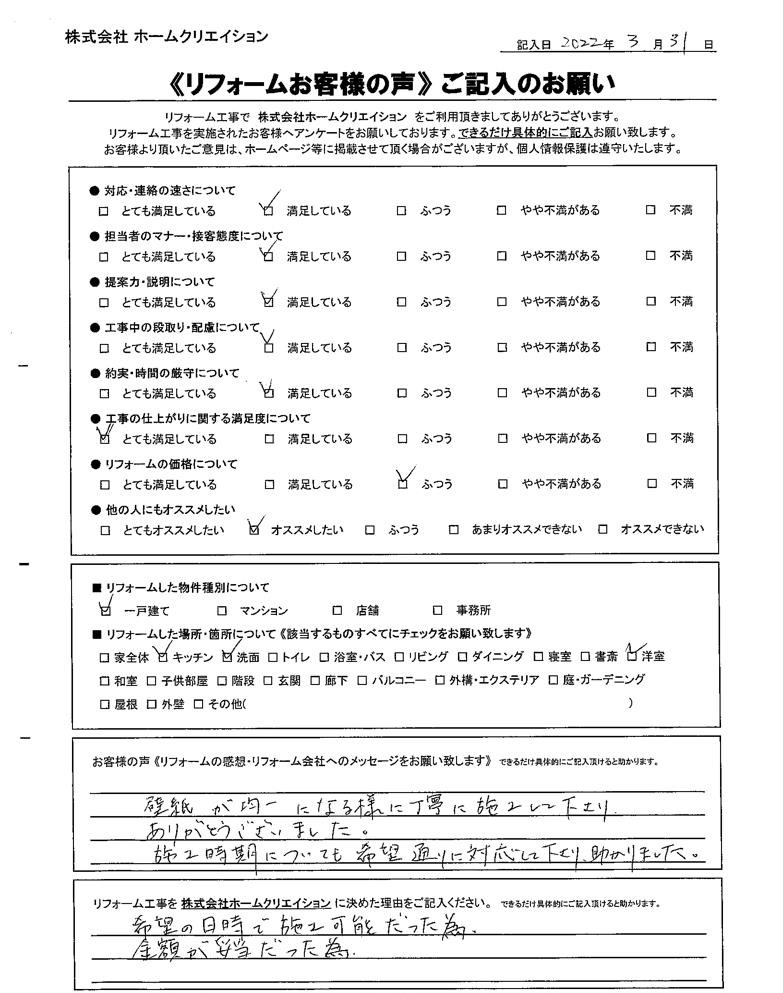 株式会社 ホームクリエイション
記入日 2022年 3 月 31 日
《リフォームお客様の声》ご記入のお願い
リフォーム工事で 株式会社ホームクリエイション をご利用頂きましてありがとうございます。
リフォーム工事を実施されたお客様へアンケートをお願いしております。できるだけ具体的にご記入お願い致します。
お客様より頂いたご意見は、ホームページ等に掲載させて頂く場合がございますが、個人情報保護は遵守いたします。
● 対応・連絡の速さについて
□ とても満足している ☑ 満足している □ ふつう □ やや不満がある □ 不満
● 担当者のマナー・接客態度について
□ とても満足している ☑ 満足している □ ふつう □ やや不満がある □ 不満
● 提案力・説明について
□ とても満足している ☑ 満足している □ ふつう □ やや不満がある □ 不満
● 工事中の段取り・配慮について
□ とても満足している ☑ 満足している □ ふつう □ やや不満がある □ 不満
● 約実・時間の厳守について
□ とても満足している ☑ 満足している □ ふつう □ やや不満がある □ 不満
● 工事の仕上がりに関する満足度について
☑ とても満足している □ 満足している □ ふつう □ やや不満がある □ 不満
● リフォームの価格について
□ とても満足している □ 満足している ☑ ふつう □ やや不満がある □ 不満
● 他の人にもオススメしたい
□ とてもオススメしたい ☑ オススメしたい □ ふつう □ あまりオススメできない □ オススメできない
■ リフォームした物件種別について
☑ 一戸建て □ マンション □ 店舗 □ 事務所
■ リフォームした場所・箇所について《該当するものすべてにチェックをお願い致します》
□ 家全体 ☑ キッチン ☑ 洗面 □ トイレ □ 浴室・バス □ リビング □ ダイニング □ 寝室 □ 書斎 ☑ 洋室
□ 和室 □ 子供部屋 □ 階段 □ 玄関 □ 廊下 □ バルコニー □ 外構・エクステリア □ 庭・ガーデニング
□ 屋根 □ 外壁 □ その他( )
お客様の声《リフォームの感想・リフォーム会社へのメッセージをお願い致します》 できるだけ具体的にご記入頂けると助かります。
壁紙が均一になる様に丁寧に施工して下さり、
ありがとうございました。
施工時期についても希望通りに対応して下さり、助かりました。
リフォーム工事を 株式会社ホームクリエイション に決めた理由をご記入ください。 できるだけ具体的にご記入頂けると助かります。
希望の日時で施工可能だった為、
金額が妥当だった為、